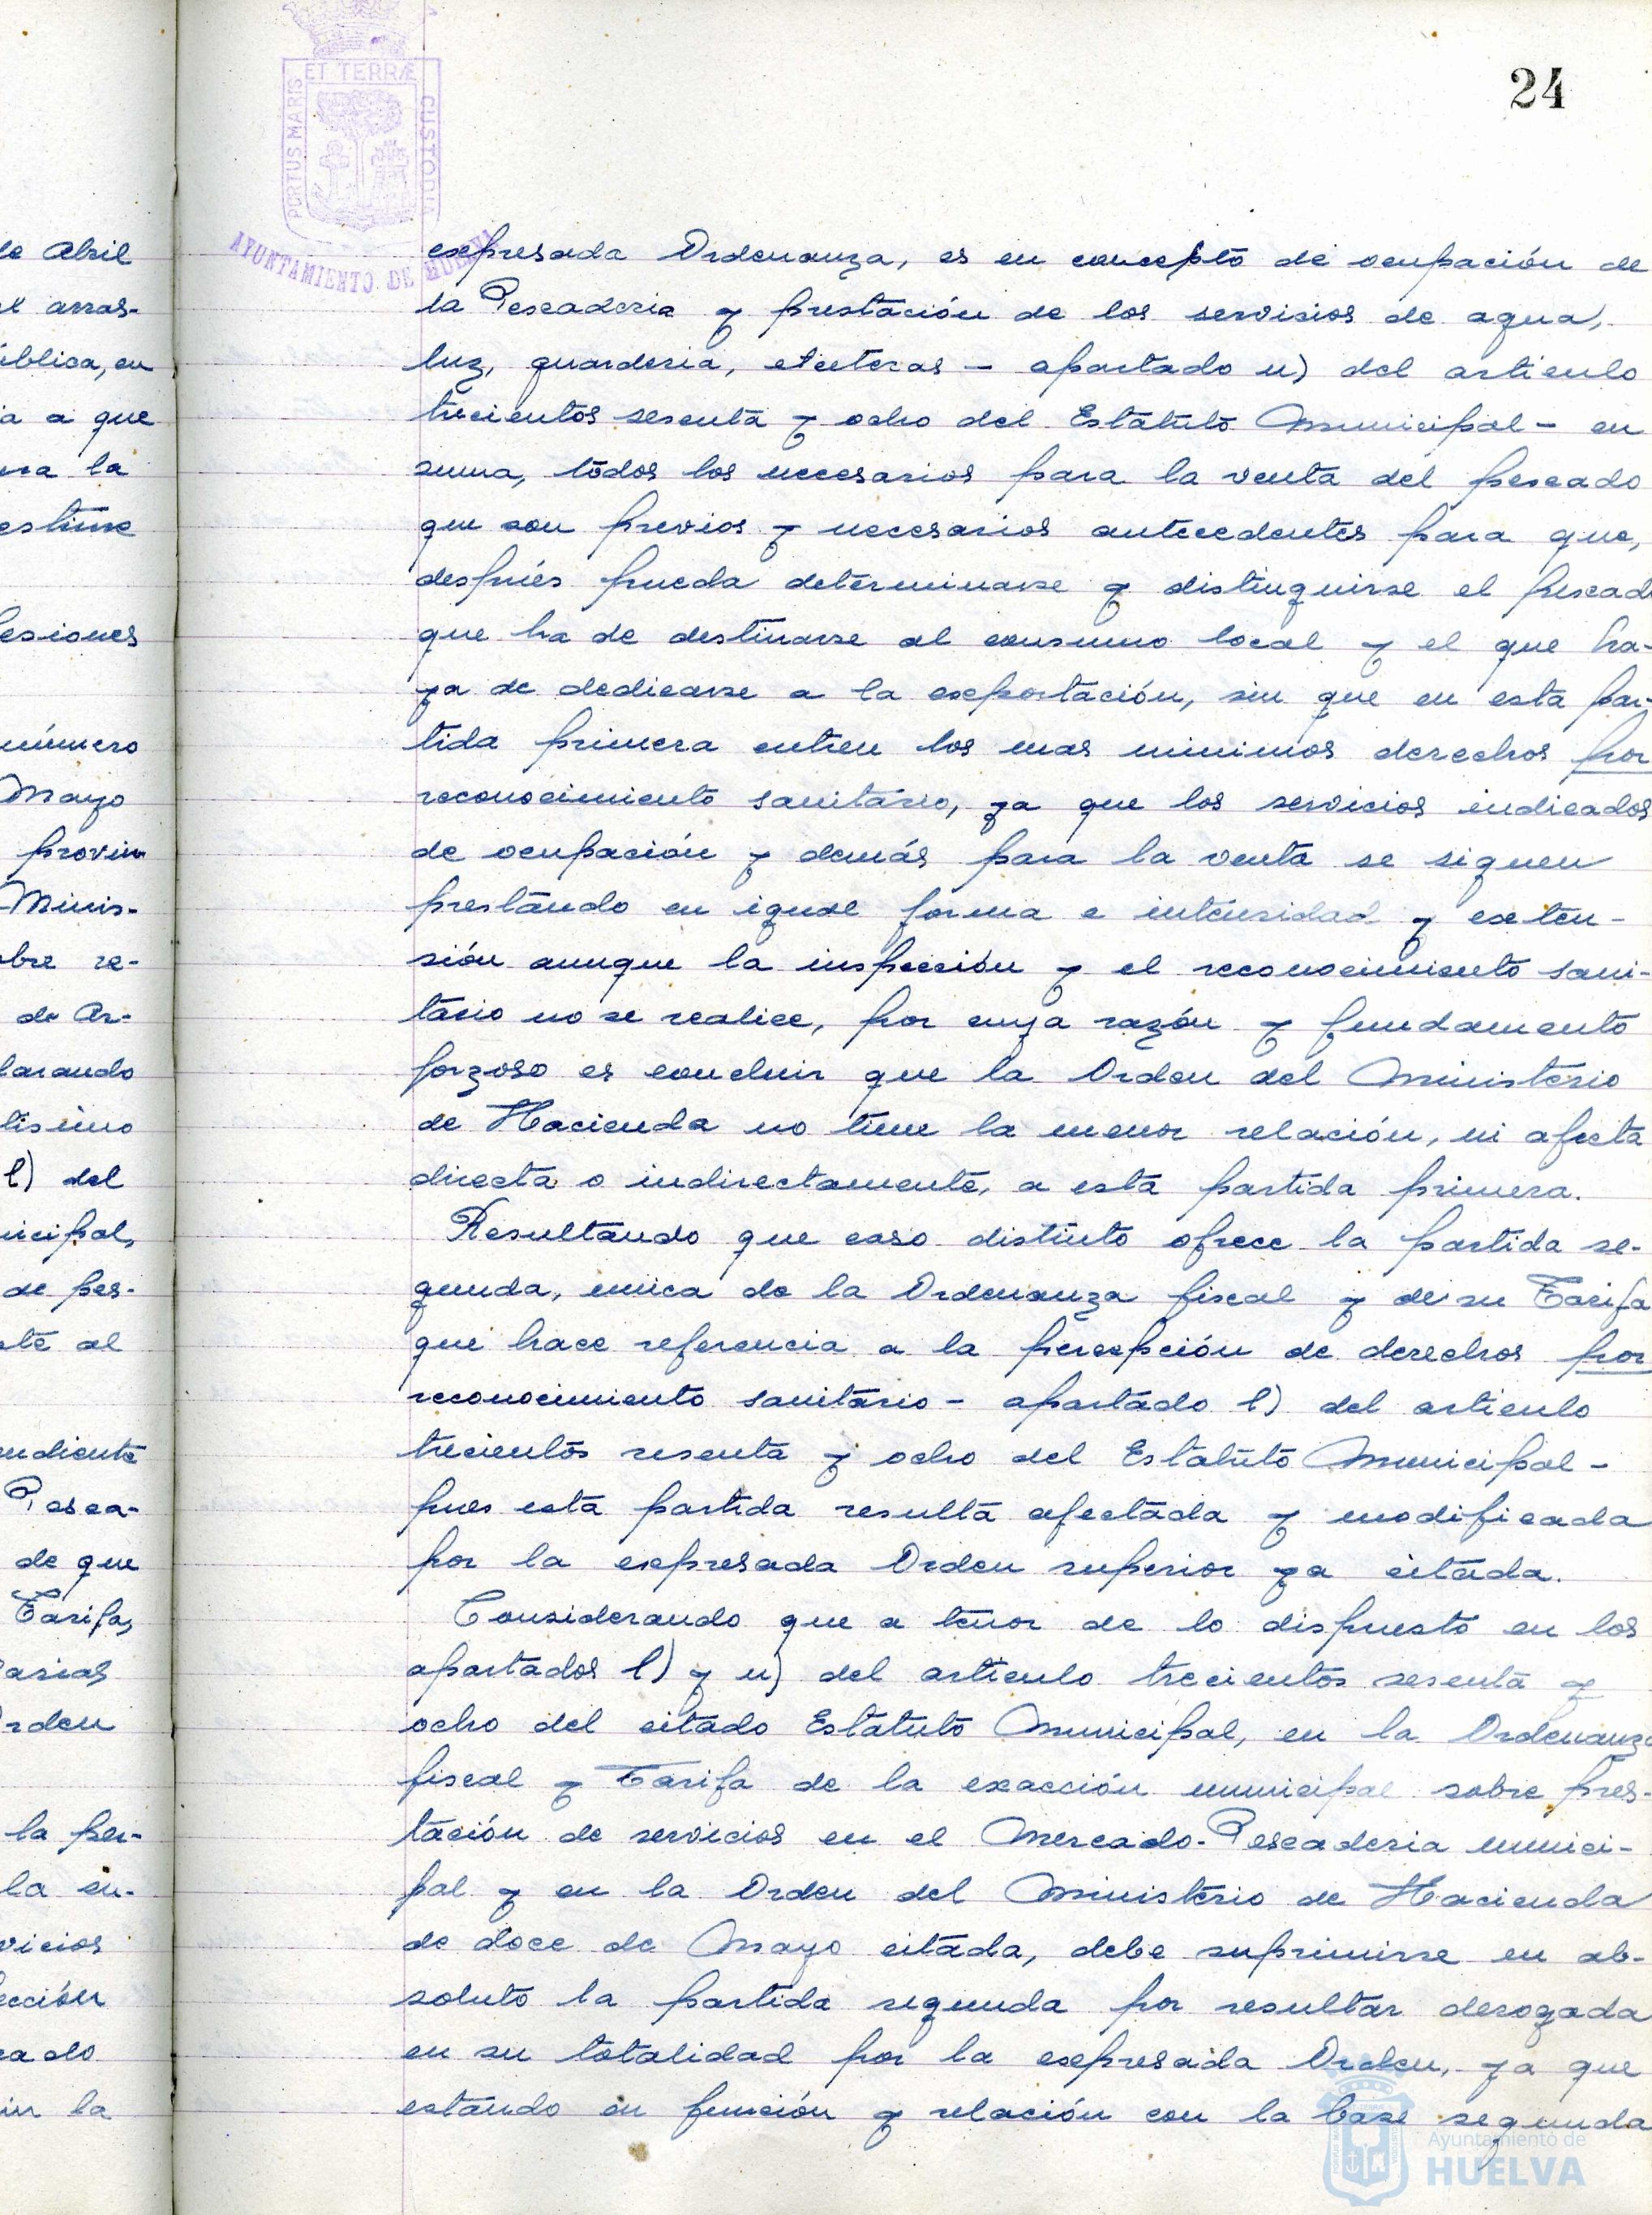 24
ET TERRÆ
PORTUS MARIS
CUSTODIA
AYUNTAMIENTO DE HUELVA
de Abril
arras-
ública, en
a a que
la
estime
sesiones
número
Mayo
provin
Minis-
bre re-
de Ar-
larando
tísimo
l) del
nicipal,
de pes-
al
endiente
Pesca-
de que
Tarifa,
arias
rden
la per-
la en-
vicios
cción
cado
la
expresada Ordenanza, es en concepto de ocupación de
la Pescaderia y prestación de los servisios de agua,
luz, guarderia, etceteras - apartado n) del articulo
trecientos sesenta y ocho del Estatuto Municipal - en
suma, todos los necesarios para la venta del pescado
que son previos y necesarios antecedentes para que,
después pueda determinarse y distinguirse el pescad
que ha de destinarse al consumo local y el que ha-
ya de dedicarse a la exportación, sin que en esta par-
tida primera entren los mas minimos derechos por
reconocimiento sanitario, ya que los servicios indicados
de ocupación y demás para la venta se siguen
prestando en igual forma e intensidad y exten-
sión aunque la inspección y el reconocimiento sani-
tario no se realice, por cuya razón y fundamento
forzoso es concluir que la Orden del Ministerio
de Hacienda no tiene la menor relación, ni afecta
directa o indirectamente, a esta partida primera.
Resultando que caso distinto ofrece la partida se-
gunda, unica de la Ordenanza fiscal y de su Tarifa
que hace referencia a la percepción de derechos por
reconocimiento sanitario - apartado l) del articulo
trecientos sesenta y ocho del Estatuto Municipal -
pues esta partida resulta afectada y modificada
por la expresada Orden superior ya citada.
Considerando que a tenor de lo dispuesto en los
apartados l) y n) del articulo trecientos sesenta y
ocho del citado Estatuto Municipal, en la Ordenanza
fiscal y Tarifa de la exacción municipal sobre pres-
tación de servicios en el Mercado-Pescaderia munici-
pal y en la Orden del Ministerio de Hacienda
de doce de Mayo citada, debe suprimirse en ab-
soluto la partida segunda por resultar derogada
en su totalidad por la expresada Orden, ya que
estando en función y relación con la base segunda
Ayuntamiento de
HUELVA